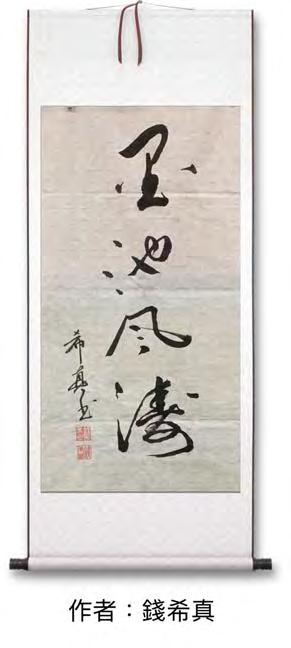 墨池风濤
希真书
作者：錢希真